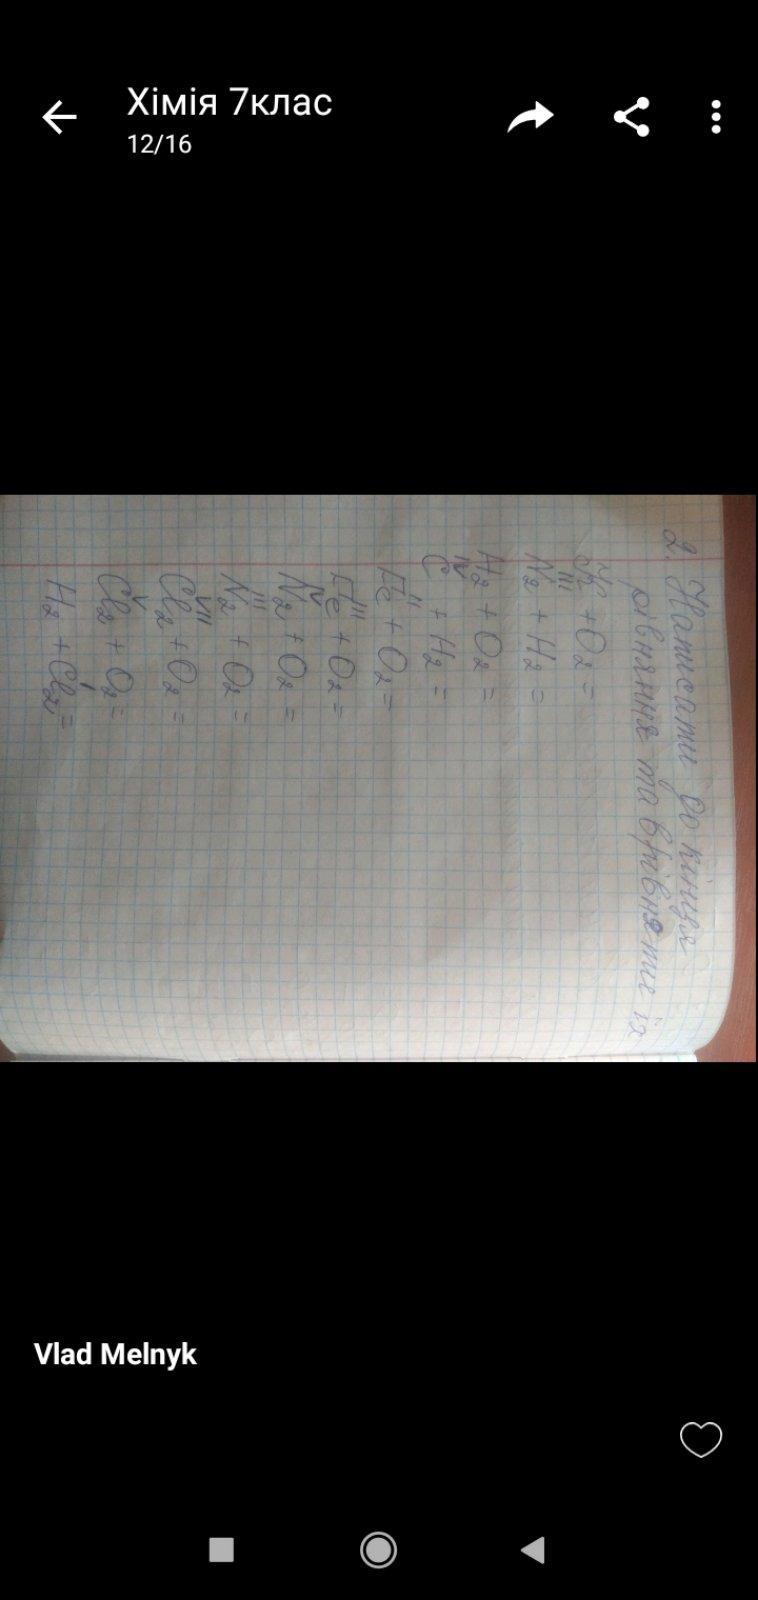 Хімія 7клас
12/16
2. Написати до кінця
рівняння та врівняти їх
+ O₂ =
III
N₂ + H₂ =
H₂ + O₂ =
IV
C + H₂ =
II
Fe + O₂ =
III
Fe + O₂ =
IV
N₂ + O₂ =
III
N₂ + O₂ =
VII
Cl₂ + O₂ =
V
Cl₂ + O₂ =
I
H₂ + Cl₂ =
Vlad Melnyk